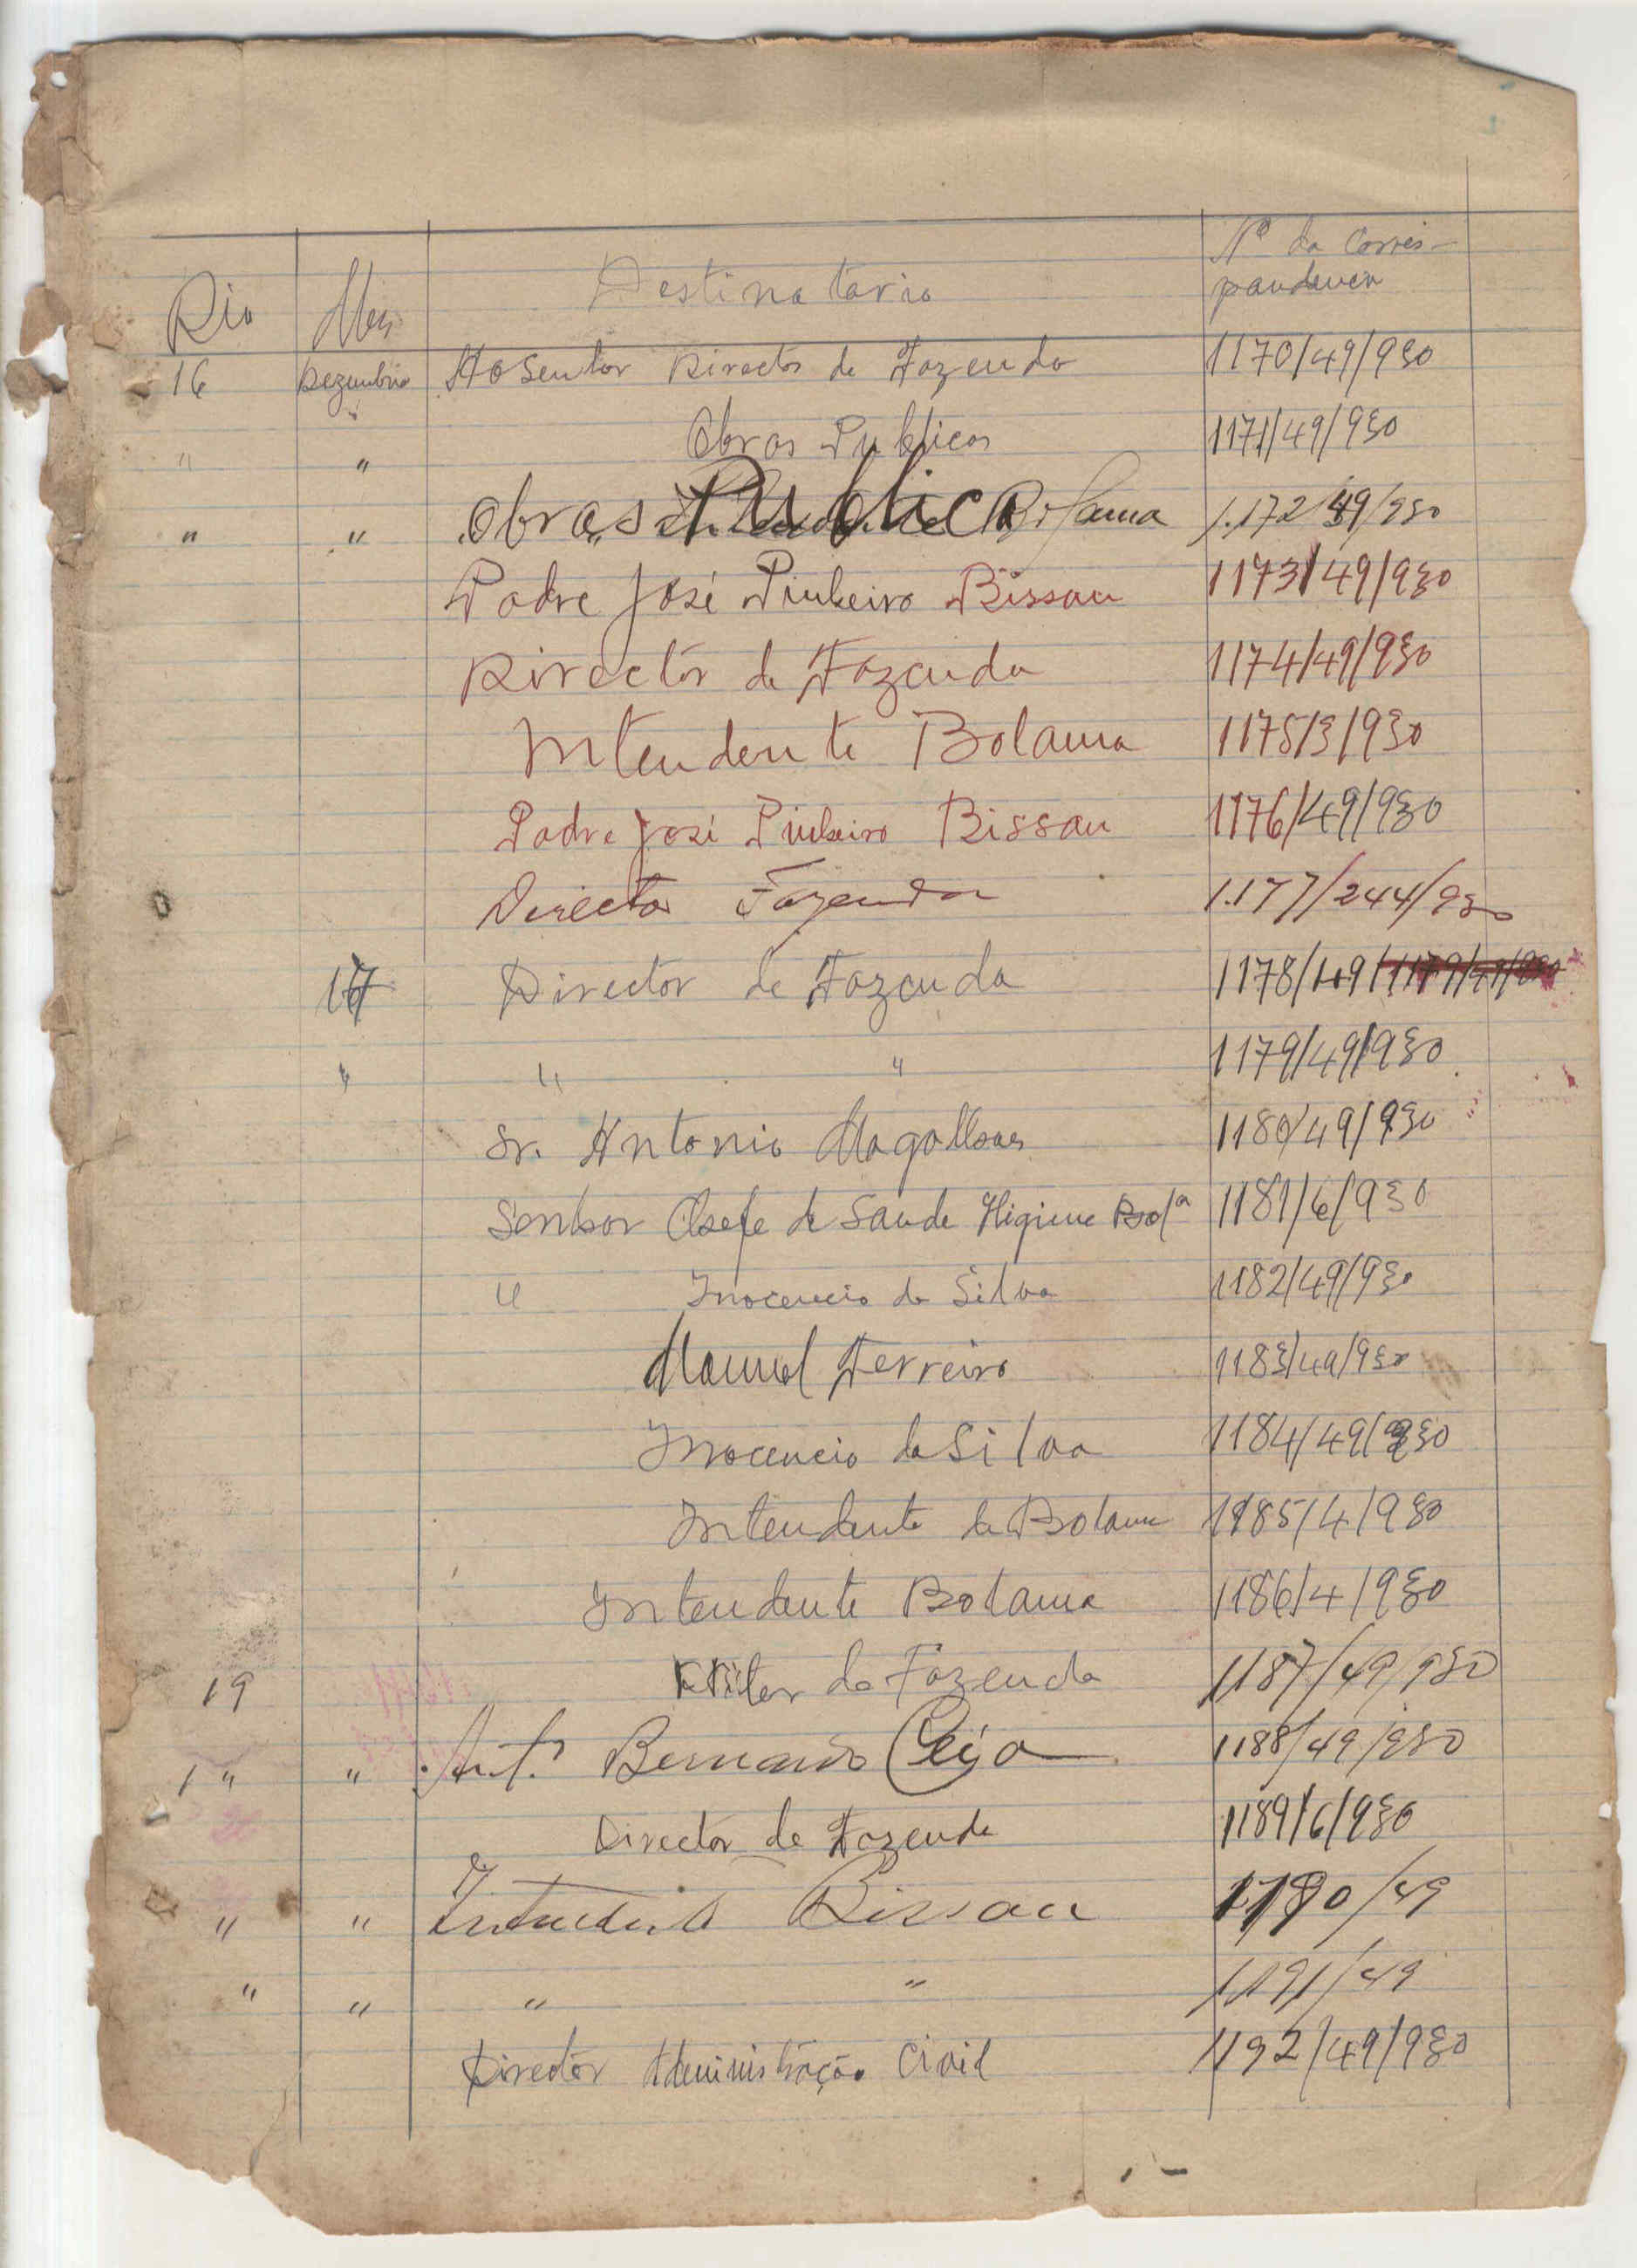 Dia Mes Destinatario Nº da Corres-
pondencia
16 Dezembro Ao Senhor Director de Fazenda 1170/49/930
" " Obras Publicas 1171/49/930
" " Obras Publica Bolama 1.172/49/930
Padre José Pinheiro Bissau 1173/49/930
Director de Fazenda 1174/49/930
Intendente Bolama 1175/3/930
Padre José Pinheiro Bissau 1176/49/930
Director Fazenda 1.177/244/930
17 Director de Fazenda 1178/149/1179/49/930
" " " 1179/49/930
Sr. Antonio Magalhaes 1180/49/930
Senhor Chefe de Saude Higiene Bolª 1181/6/930
" Inocencio da Silva 1182/49/930
Manuel Ferreira 1183/49/930
Inocencio da Silva 1184/49/930
Intendente de Bolama 1185/4/930
Intendente Bolama 1186/4/930
19 da Fazenda 1187/49/930
" " Antº Bernardo 1188/49/930
Director de Fazenda 1189/6/930
" " Intendente Bissau 1190/49
" " " " 1191/49
Director Administração Civil 1192/49/930